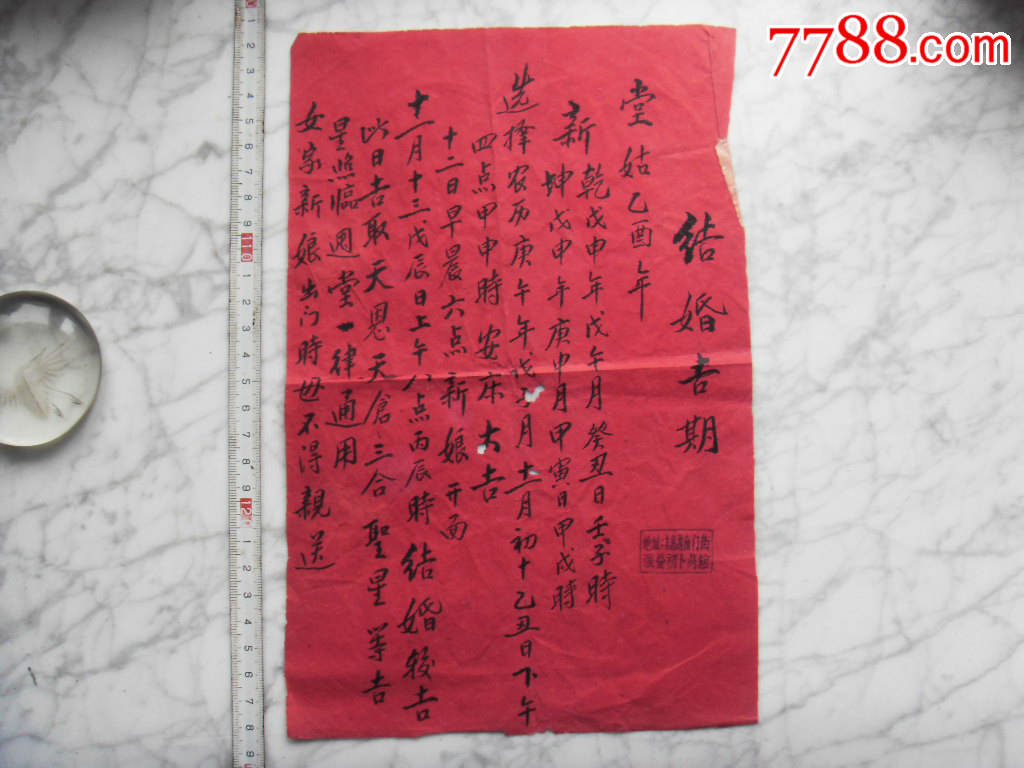 7788.com
结婚吉期
堂姑乙酉年
新乾戊申年戊午月癸丑日壬子時
坤戊申年庚申月甲寅日甲戌時
选择农历庚午年戊子月十一月初十乙丑日下午
四点甲申時安床大吉
十二日早晨六点新娘开面
十一月十三戊辰日上午八点丙辰時结婚较吉
此日吉取天恩天倉三合聖星等吉
星照临週堂一律通用
女家新娘出门時母不得親送
地址:门街